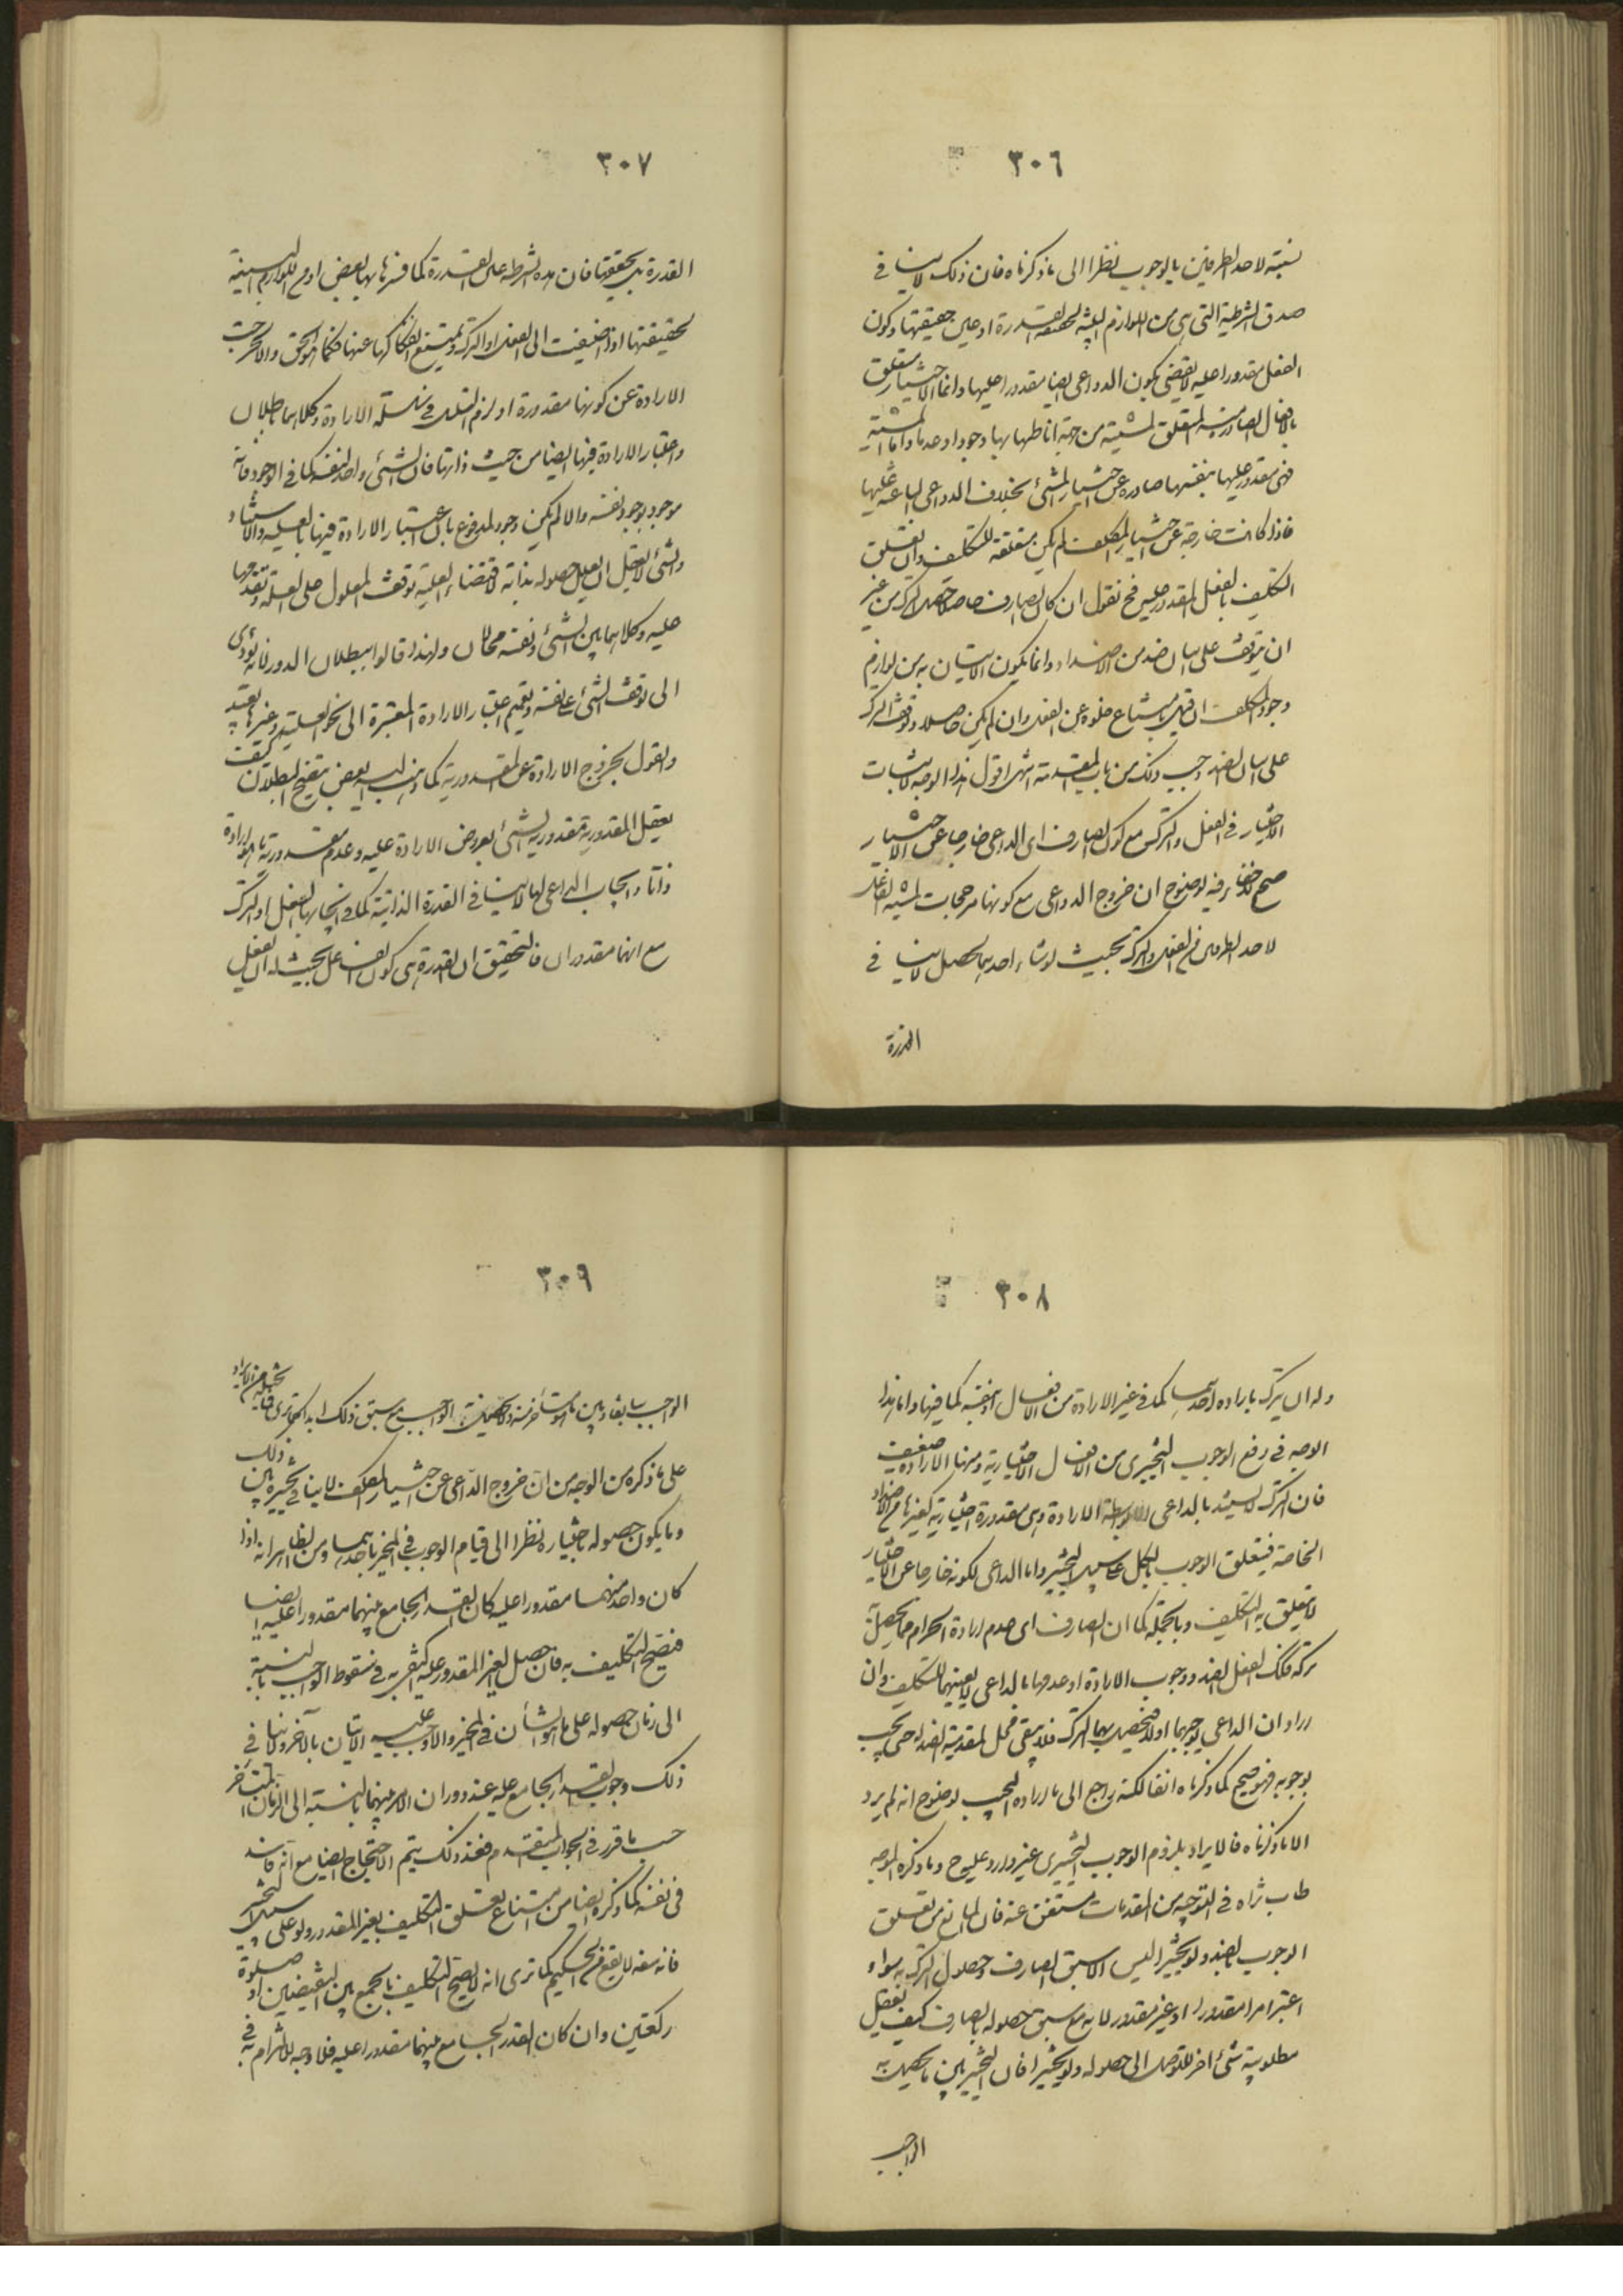 ٣٠٦
نسبته لاحد الطرفين بالوجوب نظرا الى ما ذكرناه فان ذلك لا ينافى
صدق الشرطية التى هى من اللوازم البينة لحقيقة القدرة او عين حقيقتها وكون
الفعل مقدورا عليه لا يقتضى كون الدواعى ايضا مقدورا عليها وانما الاختيار متعلق
بالافعال الصادرة المتعلق المشية من جهة اناطتها بها وجودا وعدما واما المشية
فهى مقدور عليها بنفسها صادرة عن اختيار المنشئ بخلاف الدواعى الباعثة عليها
فاذا كانت خارجة عن اختيار المكلف لم يكن متعلقة للتكليف وان تعلق
التكليف بالفعل المقدور عليه فح نقول ان كان الصارف حاصلا حصل الترك من غير
ان يتوقف على اتيان ضد من الاضداد وانما يكون الاتيان به من لوازم
وجود المكلف ان قيل بامتناع خلوه عن الفعل وان لم يكن حاصلا وتوقف الترك
على اتيان الضد وجب ذلك من باب المقدمة انتهى اقول هذا الوجه لاثبات
الاختيار فى الفعل والترك مع كون الصارف اى الداعى خارجا عن الاختيار
صحيح لا خفاء فيه لوضوح ان خروج الدواعى مع كونها مرجحات لمشية الفاعل
لاحد الطرفين من الفعل والترك بحيث لو شاء احدهما يحصل لا ينافى
القدرة
٣٠٧
القدرة بحقيقتها فان هذه الشرطية عين القدرة كما فسرها بها بعض او من اللوازم البينة
لحقيقتها اذا اضيفت الى الفعل او الترك ويمتنع انفكاكها عنها كما هو الحق والا لخرجت
الارادة عن كونها مقدورة او لزم التسلسل فى سلسلة الارادة وكلاهما باطلان
واعتبار الارادة فيها ايضا من حيث ذاتها فان الشئ واحد لنفسه كما فى الوجود فانه
موجود بوجود نفسه والا لم يكن وجود مدفوع بان اعتبار الارادة فيها بالعلية والاستناد
والشئ لا يعقل ان يعلل حصوله بذاته لاقتضاء العلية توقف المعلول على العلة وتقدمها
عليه وكلاهما بين الشئ ونفسه محالان ولهذا قالوا ببطلان الدور لانه يؤدى
الى توقف الشئ على نفسه وتعميم اعتبار الارادة المعتبرة الى نحو العلية وغيرها بعيد
والقول بخروج الارادة عن المقدورية كما ذهب اليه بعض متضح البطلان كيف
يعقل المقدورية مقدورية الشئ بعروض الارادة عليه وعدم مقدورية ما هو ارادة
ذاتا وايجاب الداعى لها لا ينافى القدرة الذاتية كما فى ايجابها الفعل او الترك
مع انهما مقدوران فالتحقيق ان القدرة هى كون الفاعل بحيث له ان يفعل
٣٠٨
وله ان يترك بارادة احدهما كما فى غير الارادة من الافعال او بنفسه كما فيها واما هذا
الوجه فى رفع الوجوب التخييرى من الافعال الاختيارية ومنها الارادة ضعيف
فان الترك لا يستند بالداعى الا بواسطة الارادة وهى مقدورة اختيارية كغيرها من الاضداد
الخاصة فيتعلق الوجوب بالكل على سبيل التخيير واما الداعى لكونه خارجا عن الاختيار
لا يتعلق به التكليف وبالجملة كما ان الصارف اى عدم ارادة الحرام مما يحصل به
تركه فكك الفعل الضد ووجوب الارادة او عدمها بالداعى لا يعنيهما للتكليف وان
اراد ان الداعى يوجبهما اولا فيحصل بهما الترك فلا يبقى محل لمقدمية الضد له حتى يجب
بوجوبه فهو صحيح كما ذكرناه انفا لكنه راجع الى ما اراده المجيب لوضوح انه لم يرد
الا ما ذكرناه فالايراد بلزوم الوجوب التخييرى غير وارد عليه ح وما ذكره الموجه
طاب ثراه فى التوجيه من المقدمات مستغنى عنه فان المانع من تعلق
الوجوب بالضد ولو تخييرا ليس الا سبق الصارف وحصول الترك به سواء
اعتبر امرا مقدورا او غير مقدور لانه مع سبق حصوله بالصارف كيف يعقل
مطلوبية شئ اخر للتوصل الى حصوله ولو تخييرا فان التخيير بين ما يحصل به
الواجب
٣٠٩
الواجب سابقا وبين ما هو متأخر عنه ولا يحصل به الواجب مع سبق ذلك ابدا كما ترى
على ما ذكره من الوجه من ان خروج الداعى عن اختيار المكلف لا ينافى تخييره بين ذلك
وما يكون حصوله باختياره نظرا الى قيام الوجوب فى المخير باحدهما ومن الظاهر انه اذا
كان واحد منهما مقدورا عليه كان القدر الجامع بينهما مقدورا عليه ايضا
فيصح التكليف به فان حصل الغير المقدور عليه اكتفى به فى سقوط الواجب بالنسبة
الى زمان حصوله على ما هو الشأن فى المخير والا وجب عليه الاتيان بالآخر ولا ينافى
ذلك وجوب القدر الجامع عليه عند دوران الامر بينهما بالنسبة الى الزمان المتأخر
حسب ما قرر فى الجواب المتقدم فعند ذلك يتم الاحتجاج ايضا مع انه فاسد
فى نفسه كما ذكره ايضا من امتناع تعلق التكليف بغير المقدور ولو على سبيل التخيير
فانه سفه لا يقع من الحكيم كما ترى انه لا يصح التكليف بالجمع بين النقيضين او صلوة
ركعتين وان كان القدر الجامع بينهما مقدورا عليه فلا وجه للالتزام به فى